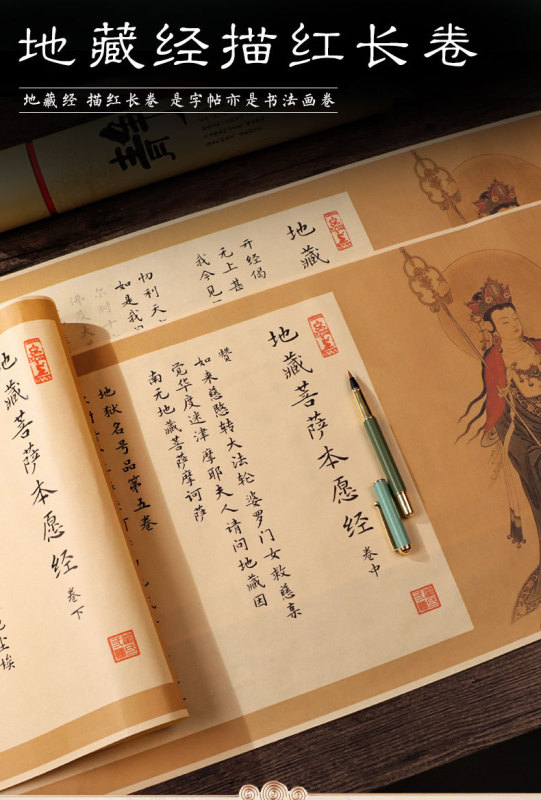 地藏经描红长卷
地藏经 描红长卷 是字帖亦是书法画卷
地藏
开经偈
无上甚
我今见
忉利天
如是我
尔时十
佛及大
地藏菩萨本愿经 卷中
赞
如来慈愍转大法轮婆罗门女救慈亲
觉华度迷津摩耶夫人请问地藏因
南无地藏菩萨摩诃萨
地狱名号品第五卷
地藏菩萨本愿经 卷下